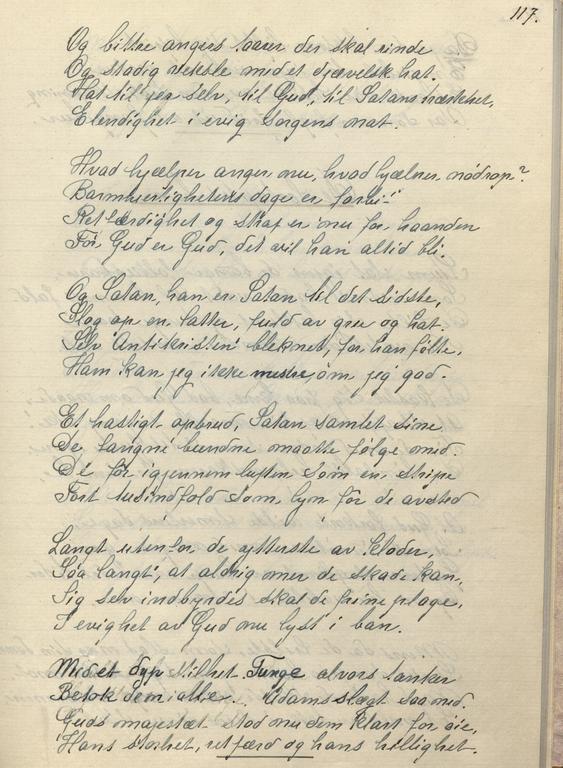 117.
Og bittre angers taarer der skal rinde
Og stadig veksle med et djævelsk hat.
Hat til jer selv, til Gud, til Satans
Elendighet i evig sorgens nat.
Hvad hjælper anger nu, hvad hjælper nödrop?
Barmhjertighetens dage er forbi!
Retfærdighet og straf er nu for haanden
For Gud er Gud, det vil han altid bli.
Og Satan, han er Satan til det sidste,
Slog op en latter, fuld av gru og hat.
Selv "Antikristen" bleknet, for han følte,
Ham kan jeg ikke mestre, om jeg gad.
Et hastigt opbrud, Satan samlet sine
De fangne bundne maatte følge med.
De för igjennem luften som en stripe
Fort tusindfold som lyn för de avsted
Langt utenfor de ytterste av kloder,
Saa langt, at aldrig mer de skade kan,
Sig selv indbyrdes skal de pine plage,
I evighet av Gud nu lyst i ban.
Med et dyp stilhet. Tunge alvors tanker
Betok dem alle. Adams slægt saa ned.
Guds majestæt stod nu dem klart for öie,
Hans storhet, retfærd og hans hellighet.